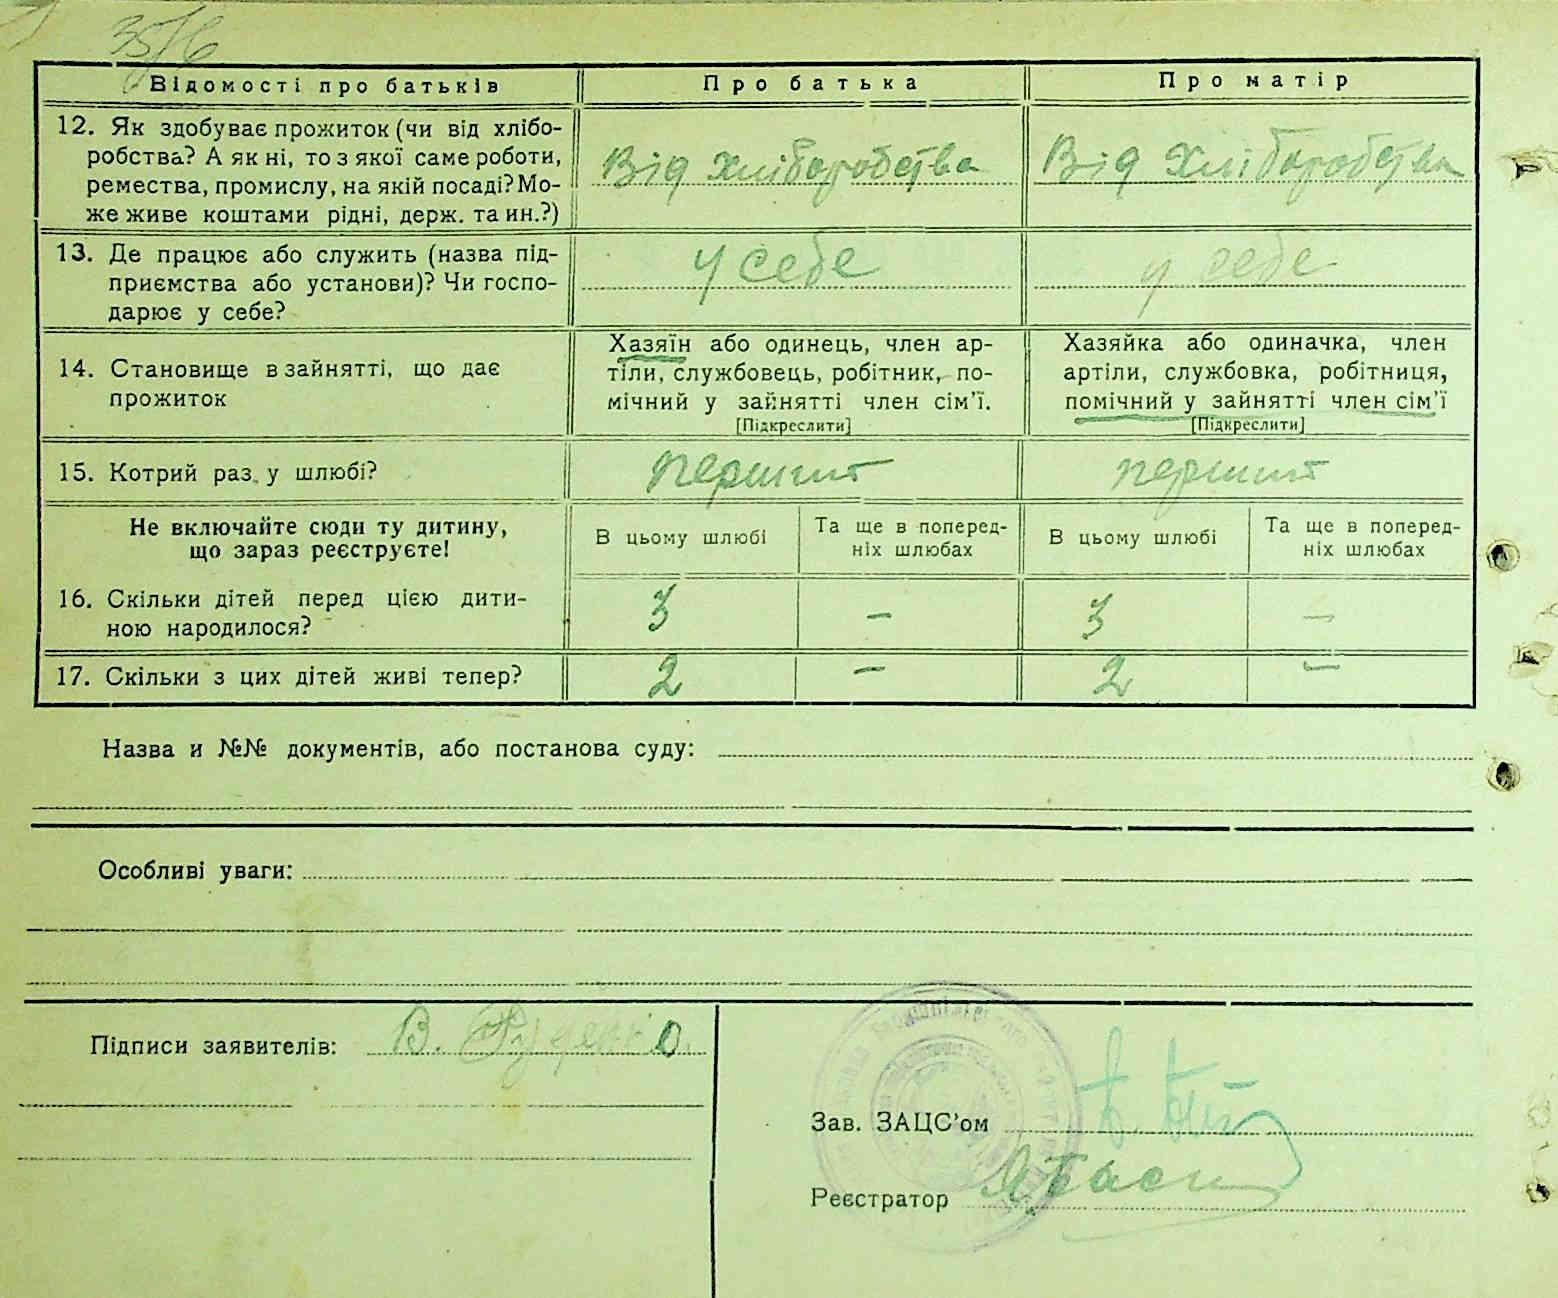 Відомості про батьків
Про батька
Про матір
12. Як здобуває прожиток (чи від хлібо-
робства? А як ні, то з якої саме роботи,
ремества, промислу, на якій посаді? Мо-
же живе коштами рідні, держ. та ин.?)
Від хліборобства
Від хліборобства
13. Де працює або служить (назва під-
приємства або установи)? Чи госпо-
дарює у себе?
у себе
у себе
14. Становище в зайнятті, що дає
прожиток
Хазяїн або одинець, член ар-
тіли, службовець, робітник, по-
мічний у зайнятті член сім'ї.
[Підкреслити]
Хазяйка або одиначка, член
артіли, службовка, робітниця,
помічний у зайнятті член сім'ї
[Підкреслити]
15. Котрий раз у шлюбі?
перший
перший
Не включайте сюди ту дитину,
що зараз реєструєте!
В цьому шлюбі
Та ще в поперед-
ніх шлюбах
В цьому шлюбі
Та ще в поперед-
ніх шлюбах
16. Скільки дітей перед цією дити-
ною народилося?
3
–
3
–
17. Скільки з цих дітей живі тепер?
2
–
2
–
Назва и №№ документів, або постанова суду:
Особливі уваги:
Підписи заявителів: В.
Зав. ЗАЦС'ом
Реєстратор